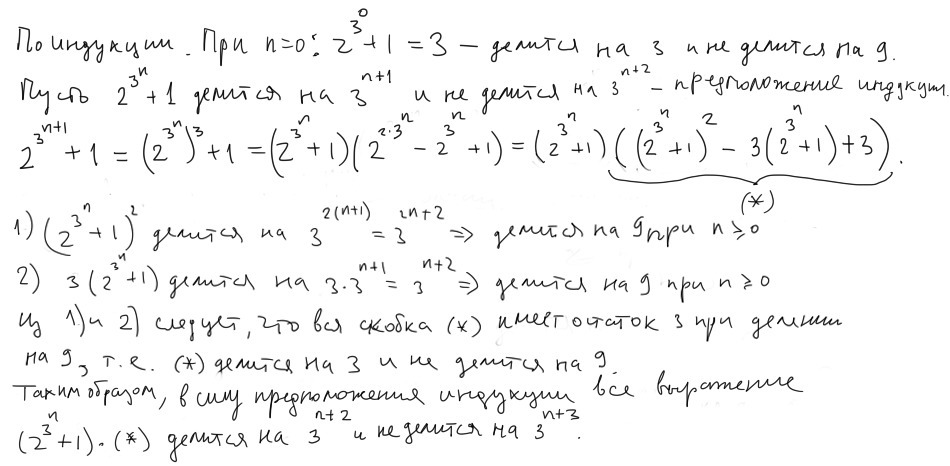 По индукции. При n=0: 2^{3^0}+1=3 – делится на 3 и не делится на 9.
Пусть 2^{3^n}+1 делится на 3^{n+1} и не делится на 3^{n+2} – предположение индукции.
2^{3^{n+1}}+1 = (2^{3^n})^3+1 = (2^{3^n}+1)(2^{2·3^n} – 2^{3^n}+1) = (2^{3^n}+1)((2^{3^n}+1)^2 – 3(2^{3^n}+1)+3).
(*)
1) (2^{3^n}+1)^2 делится на 3^{2(n+1)} = 3^{2n+2} ⇒ делится на 9 при n≥0
2) 3(2^{3^n}+1) делится на 3·3^{n+1} = 3^{n+2} ⇒ делится на 9 при n≥0
Из 1) и 2) следует, что вся скобка (*) имеет остаток 3 при делении
на 9, т.е. (*) делится на 3 и не делится на 9.
Таким образом, в силу предположения индукции все выражение
(2^{3^n}+1)·(*) делится на 3^{n+2} и не делится на 3^{n+3}.